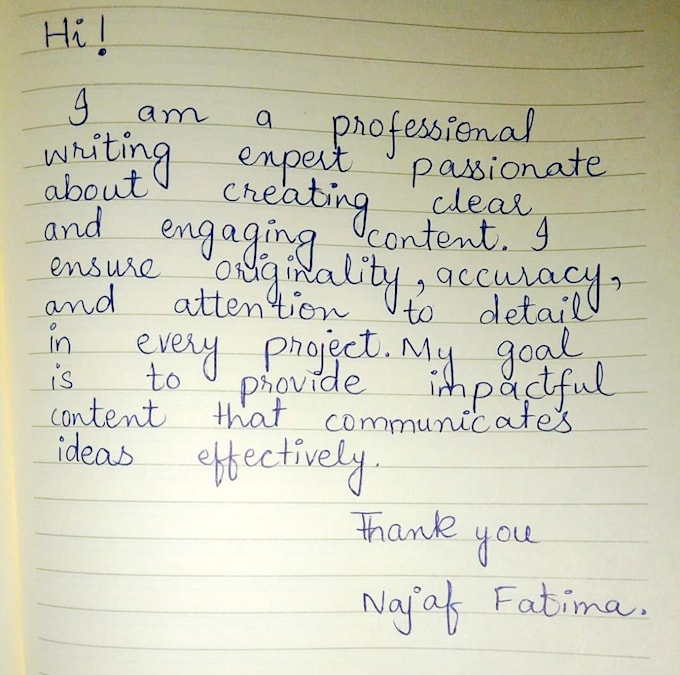 Hi!
I am a professional
writing expert passionate
about creating clear
and engaging content. I
ensure originality, accuracy,
and attention to detail
in every project. My goal
is to provide impactful
content that communicates
ideas effectively.
Thank you
Najaf Fatima.